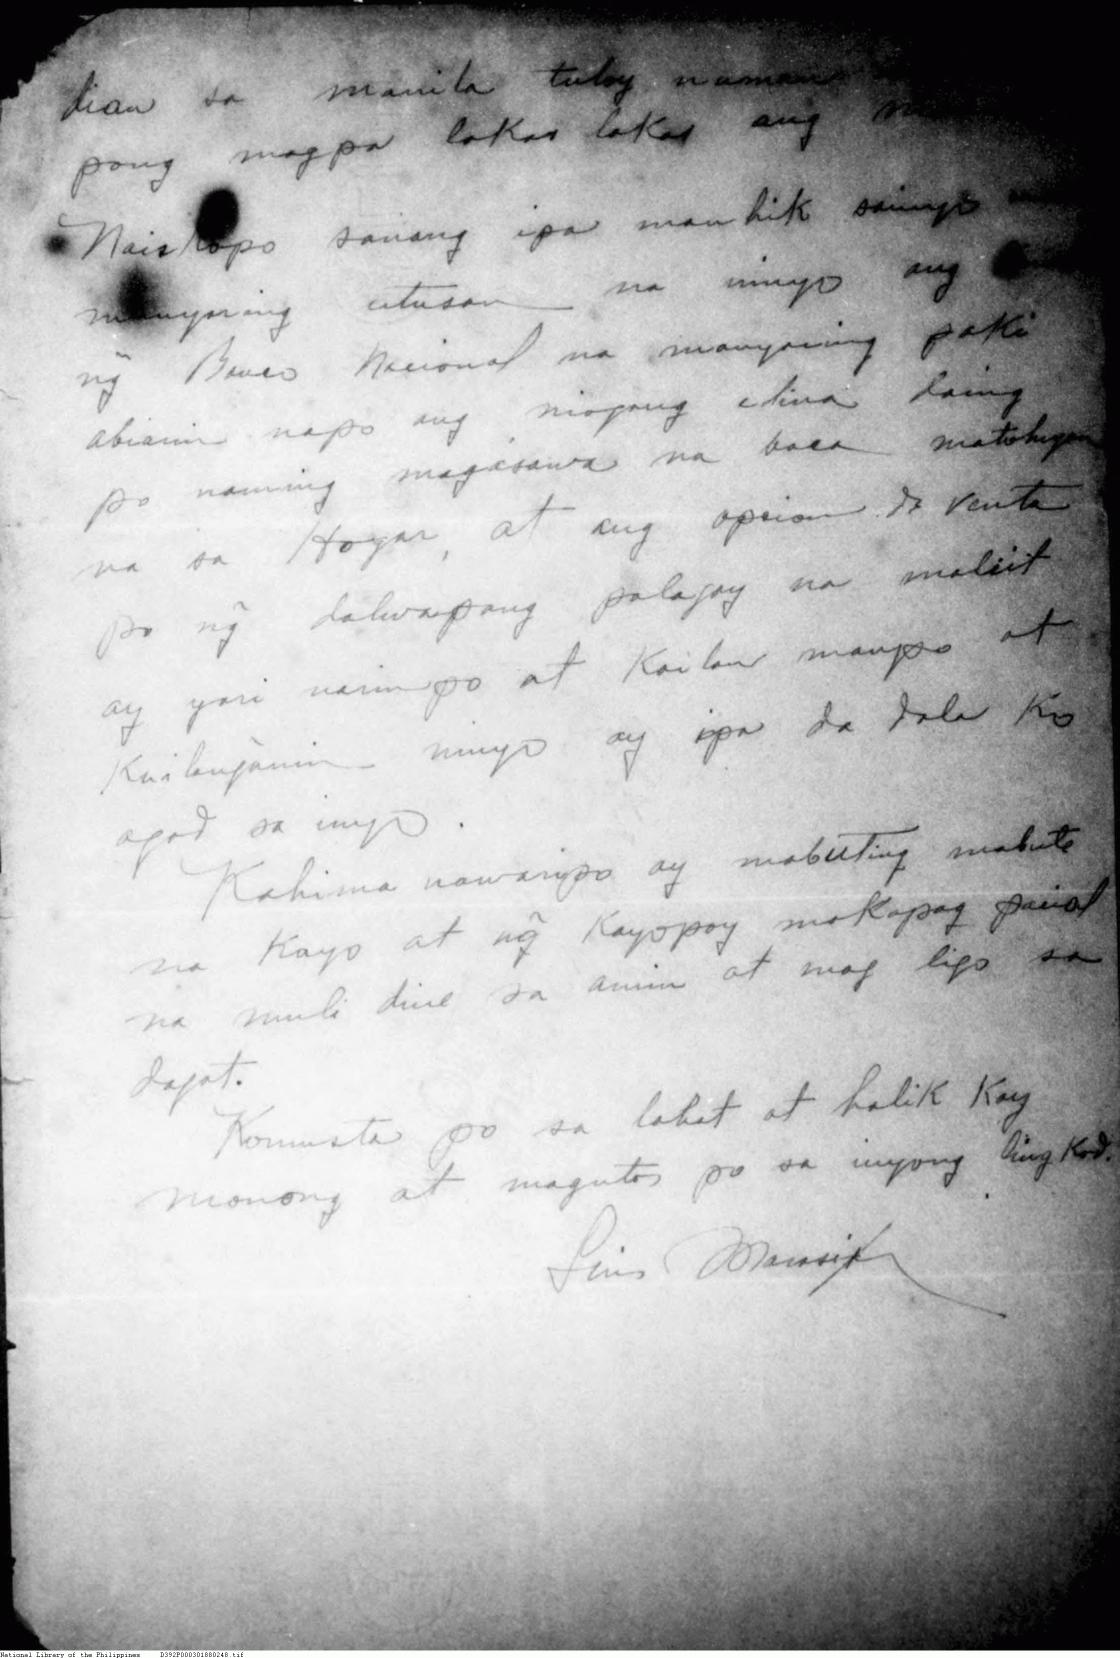 dian sa manila tuloy naman
pong magpa lakas lakas ang
Nais kopo sanang ipa manhik sainyo
manyaring utusan na ninyo ang
ng̃ Banco Nacional na manyaring paki
abianin napo ang niogang
po naming magasawa na baca matohuyan
na sa Hogar, at ang opcion de venta
po ng̃ dalwapong palagay na maliit
ay yari narin po at Kailan manpo at
Kailang̃anin ninyo ay ipa da dala Ko
agad sa inyo.
Kahima nawaripo ay mabuting mabute
na Kayo at ng̃ Kayopoy makapag pacial
na muli dine sa amin at mag ligo sa
dagat.
Komusta po sa lahat at halik Kay
monong at magutos po sa inyong ling Kod.
Luis
National Library of the Philippines D392P000301880248.tif